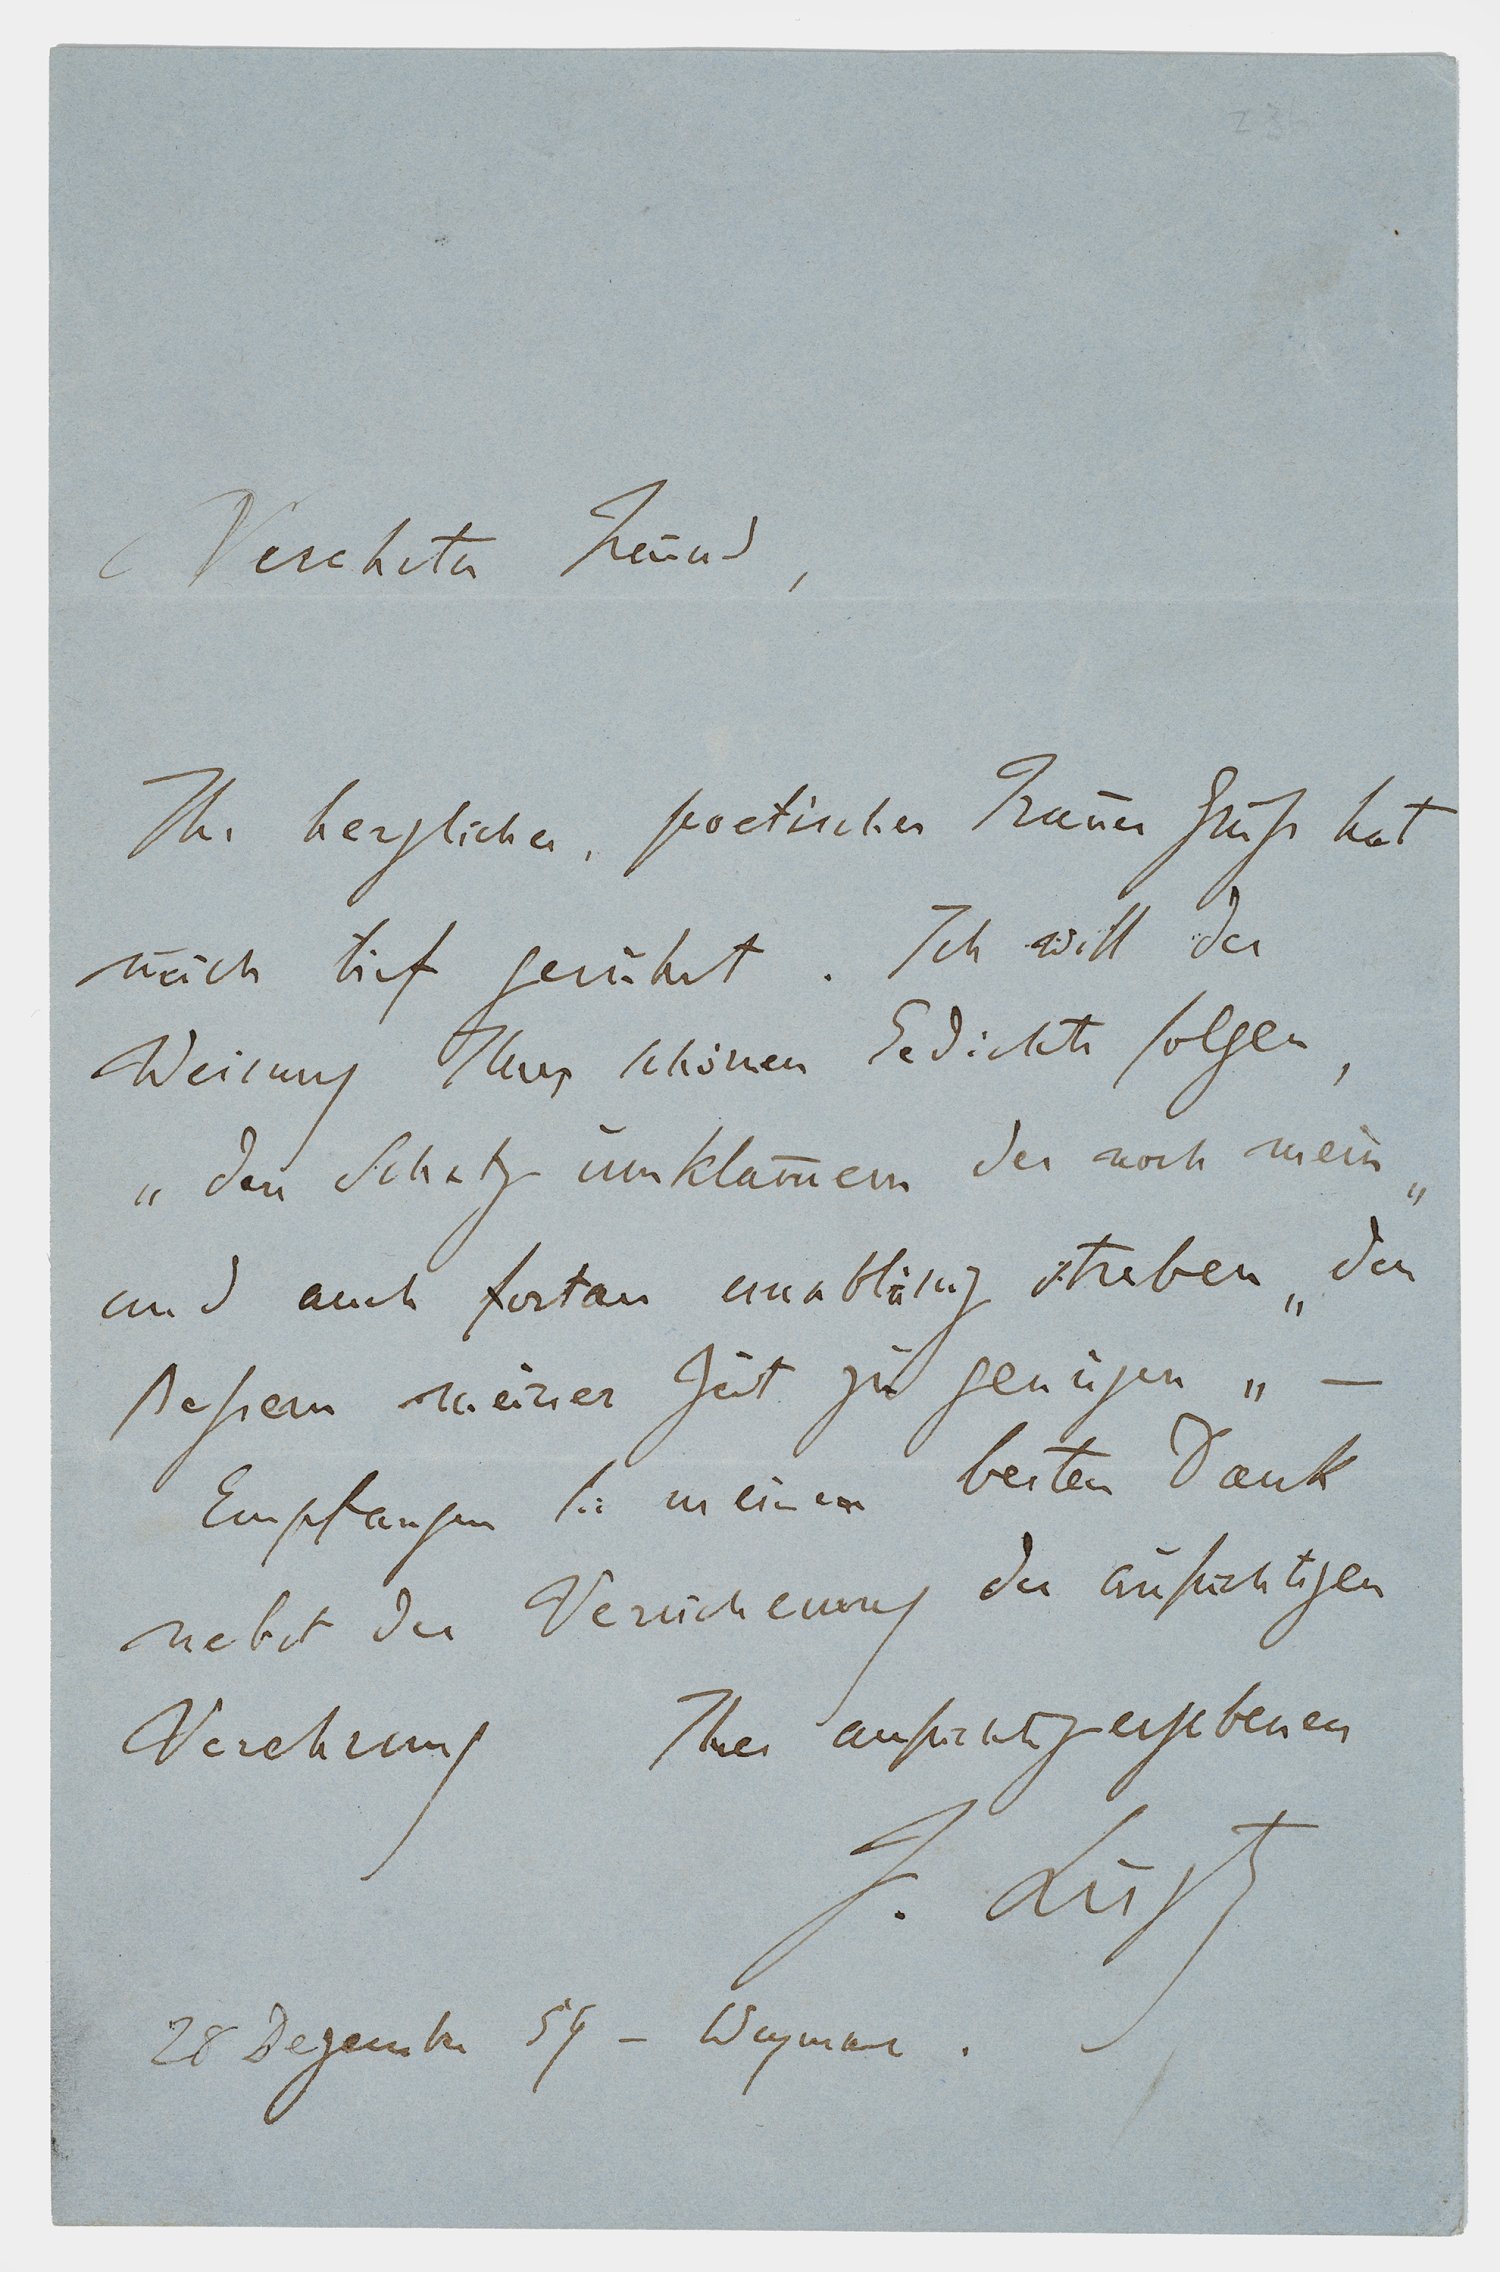 Verehrter Freund,
Ihr herzlicher, poetischer Trauer Gruß hat
mich tief gerührt. Ich will der
Weisung Ihres schönen Gedichtes folgen,
„den Schatz umklam̄ern der noch mein„
und auch fortan unabläßig streben „den
Bessern meiner Zeit zu genügen„ —
Empfangen Sie meinen besten Dank
nebst der Versicherung der aufrichtigen
Verehrung Ihres aufrichtig ergebenen
F. Liszt
28 Dezember 59 – Weymar.